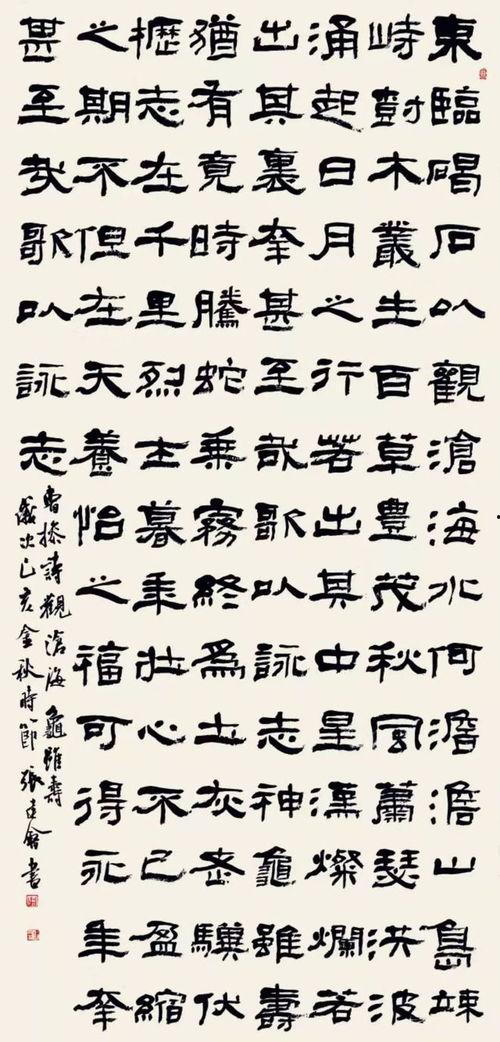 東臨碣石以觀滄海水何澹澹山島竦
峙樹木叢生百草豊茂秋風蕭瑟洪波
涌起日月之行若出其中星漢燦爛若
出其裏幸甚至哉歌以詠志神龜雖壽
猶有竟時騰蛇乘霧終為土灰老驥伏
櫪志在千里烈士暮年壯心不已盈縮
之期不但在天養怡之福可得永年幸
甚至哉歌以詠志
曹操詩觀滄海龜雖壽
歲次己亥金秋時節張書